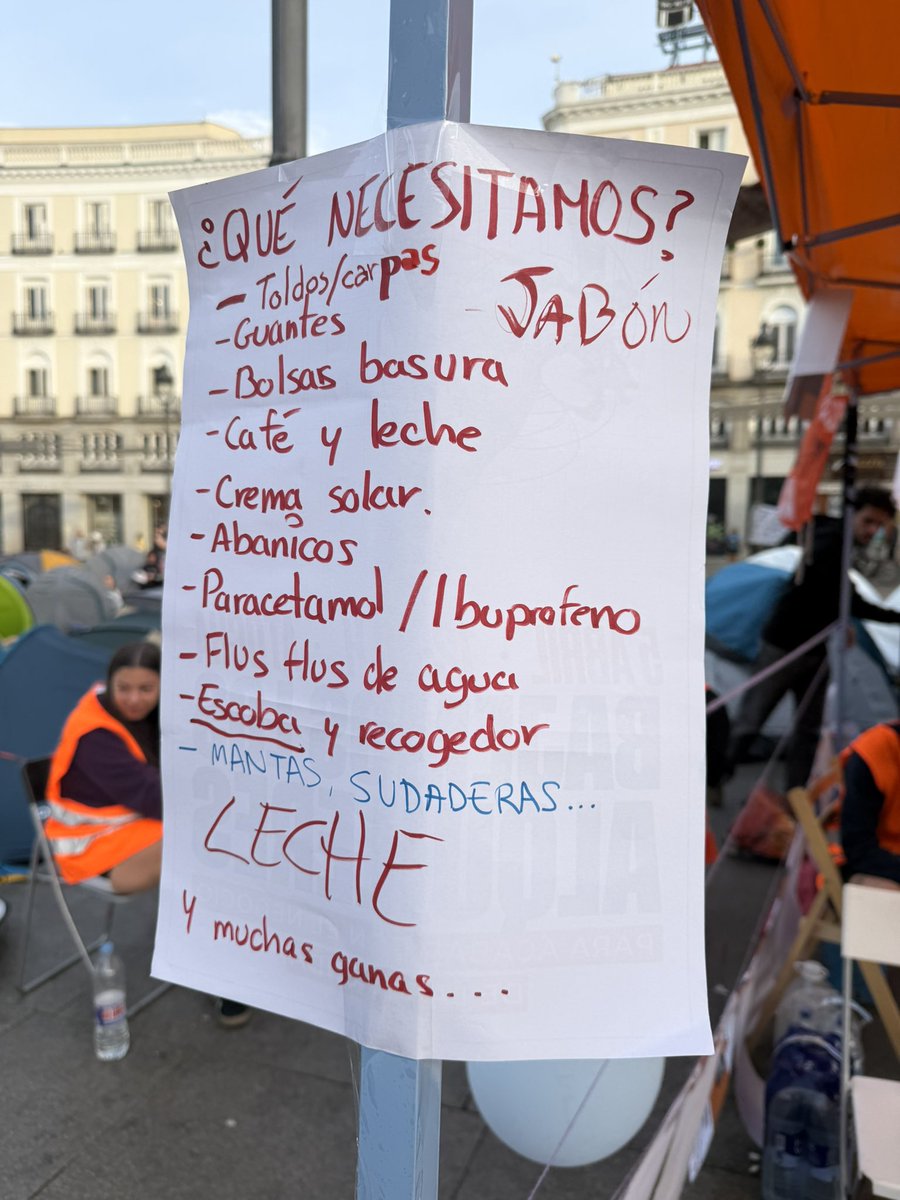 ¿QUÉ NECESITAMOS?
- Toldos/carpas
JABón
- Guantes
- Bolsas basura
- Café y leche
- Crema solar.
- Abanicos
- Paracetamol / Ibuprofeno
- Flus flus de agua
- Escoba y recogedor
- MANTAS, SUDADERAS...
LECHE
y muchas ganas...